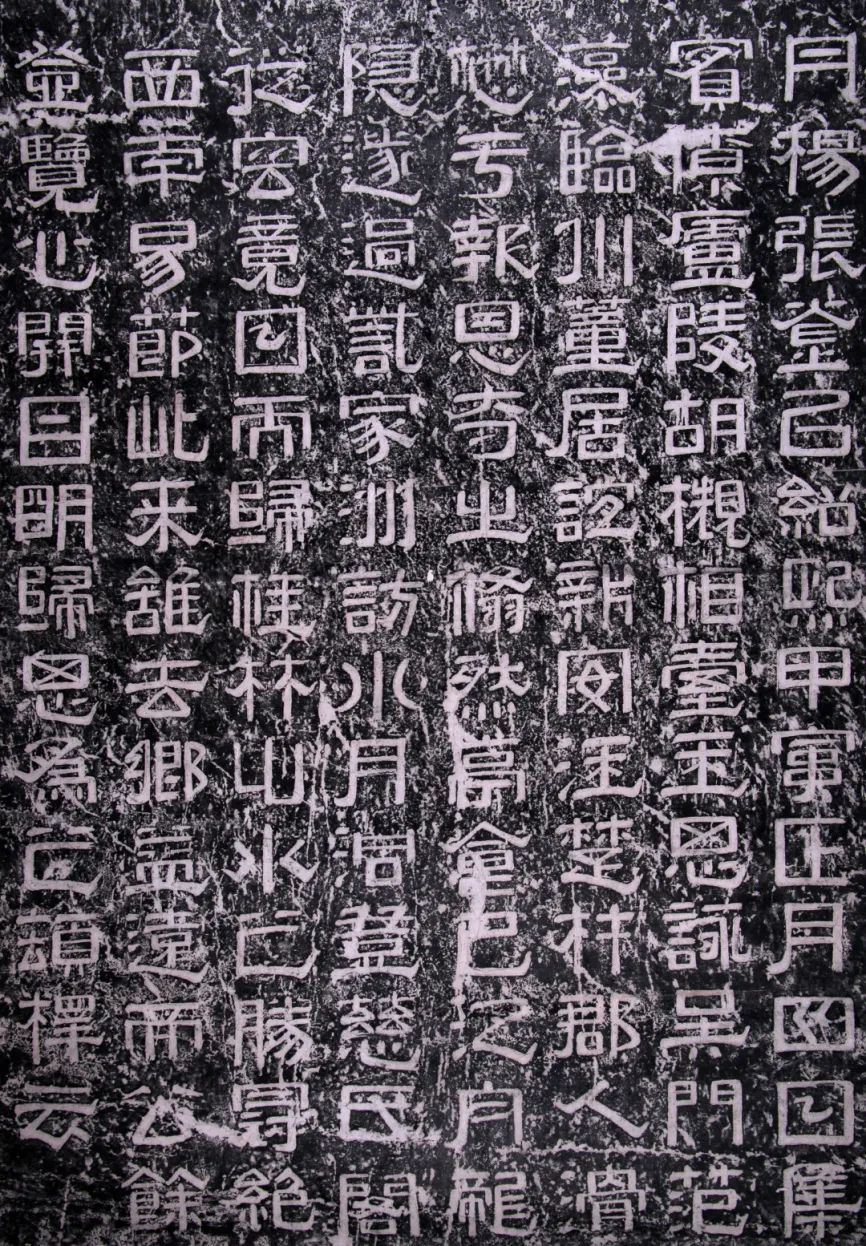 丹楊張釜㠯紹熙甲寅正月四日集
賓僚廬陵胡槻相臺王思詠吳門范
藻臨川董居誼新安汪楚材郡人滑
懋于報恩寺之翛然亭會已泛舟龍
隱遂過訾家洲訪水月洞登慈氏閣
從容竟日而歸桂林山水之勝冠絕
西南易節此来雖去鄉益遠而公餘
並覽心開目明歸思為之頓釋云